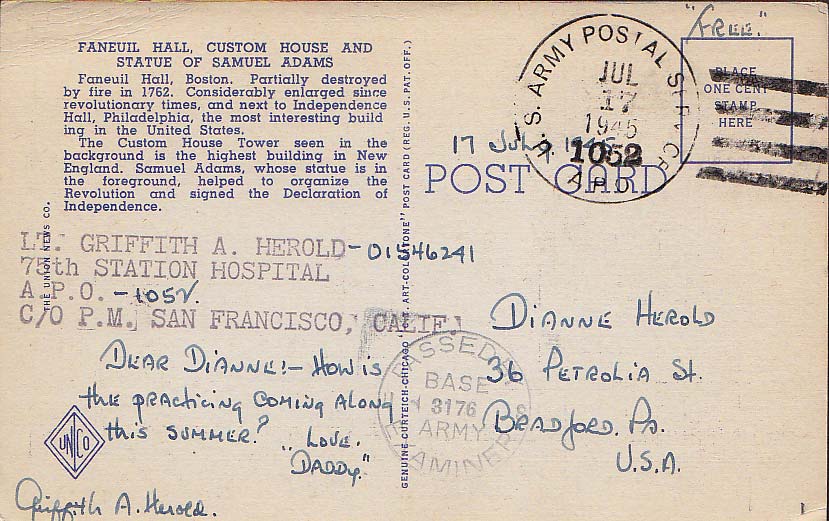 "FREE."
FANEUIL HALL, CUSTOM HOUSE AND
STATUE OF SAMUEL ADAMS
Faneuil Hall, Boston. Partially destroyed
by fire in 1762. Considerably enlarged since
revolutionary times, and next to Independence
Hall, Philadelphia, the most interesting build
ing in the United States.
The Custom House Tower seen in the
background is the highest building in New
England. Samuel Adams, whose statue is in
the foreground, helped to organize the
Revolution and signed the Declaration of
Independence.
THE UNION NEWS CO.
GENUINE CURTEICH-CHICAGO "C.T. ART-COLORTONE" POST CARD (REG. U.S. PAT. OFF.)
U.S. ARMY POSTAL SERVICE
JUL
17
1945
1052
A.P.O.
PLACE
ONE CENT
STAMP
HERE
17 July, 1945
POST CARD
LT. GRIFFITH A. HEROLD-01546241
75th STATION HOSPITAL
A.P.O. -1052.
C/O P.M. SAN FRANCISCO, CALIF.
DEAR DIANNE!- HOW IS
the practicing COMING ALONG
this SUMMER?
"LOVE.
DADDY."
UNCO
Griffith A. Herold.
PASSED BY
BASE
3176
ARMY
EXAMINER
DIANNE HEROLD
36 PETROLIA St.
BRADFORD. PA.
U.S.A.